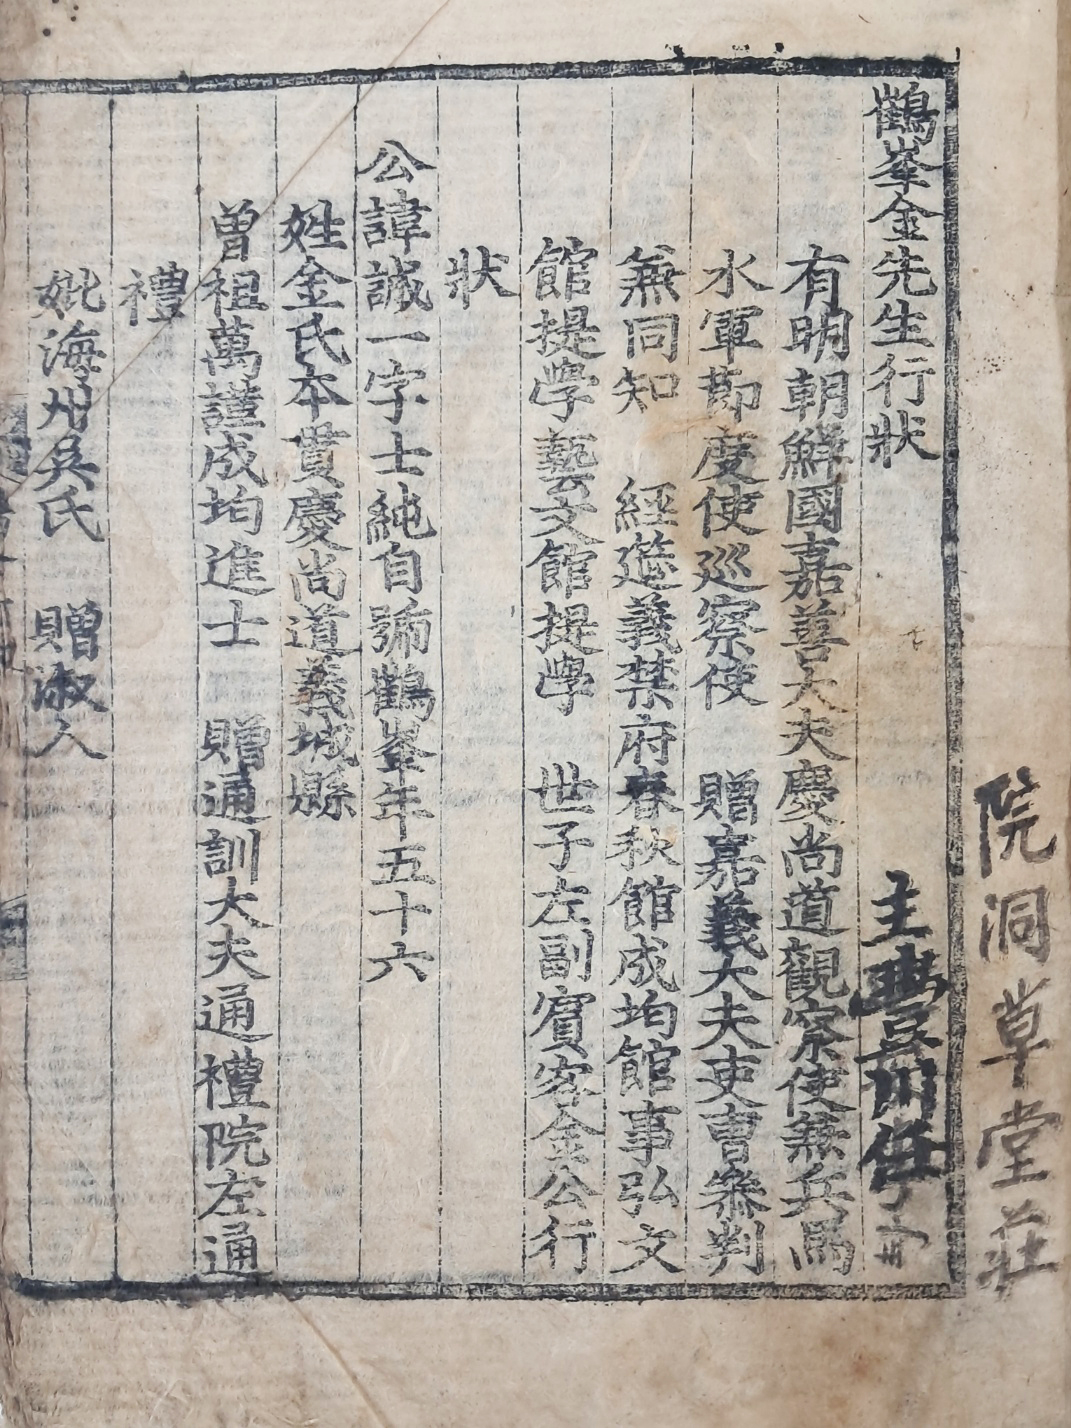 院洞草堂莊
鶴峯金先生行狀
主
豊川任
有明朝鮮國嘉善大夫慶尚道觀察使兼兵馬
水軍節度使巡察使 贈嘉義大夫吏曹叅判
兼同知 經筵義禁府春秋館成均館事弘文
館提學藝文館提學 世子左副賓客金公行
狀
公諱誠一字士純自號鶴峯年五十六
姓金氏本貫慶尚道義城縣
曾祖萬謹成均進士 贈通訓大夫通禮院左通
禮
妣海州吳氏 贈淑人